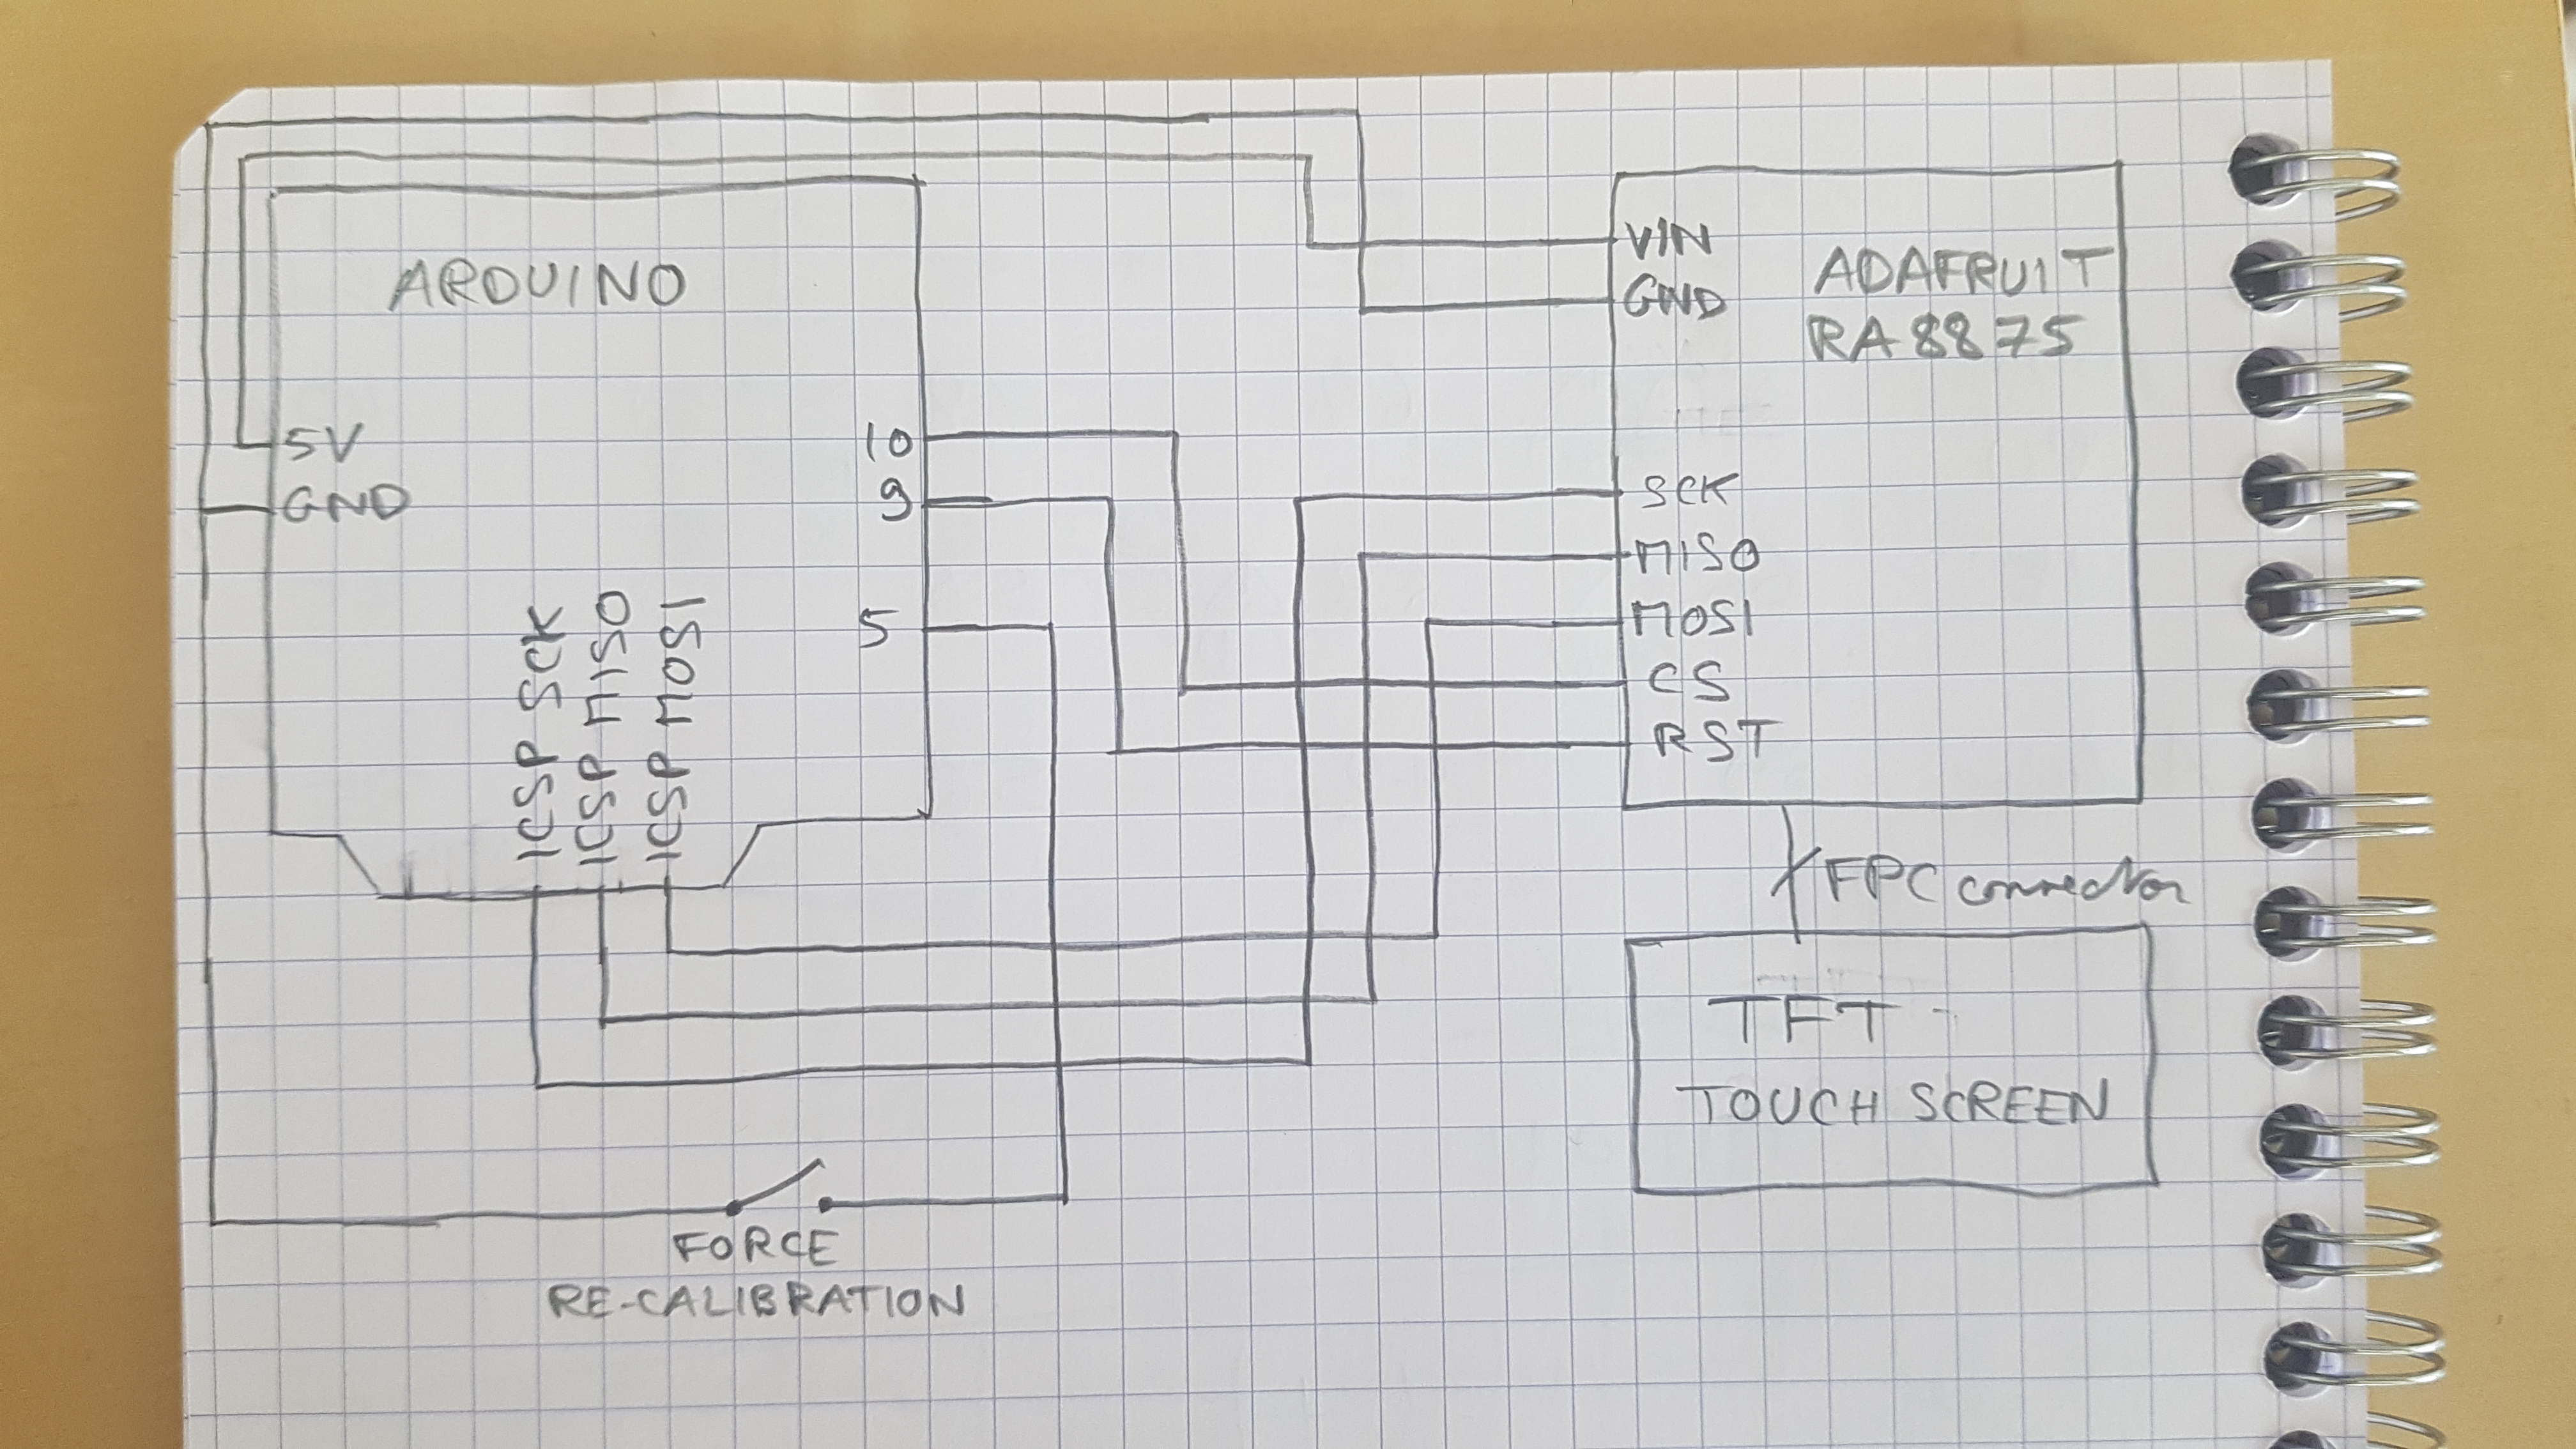 ARDUINO
5V
GND
10
9
5
ICSP SCK
ICSP MISO
ICSP MOSI
VIN
GND
ADAFRUIT
RA8875
SCK
MISO
MOSI
CS
RST
FPC connector
TFT
TOUCH SCREEN
FORCE
RE-CALIBRATION